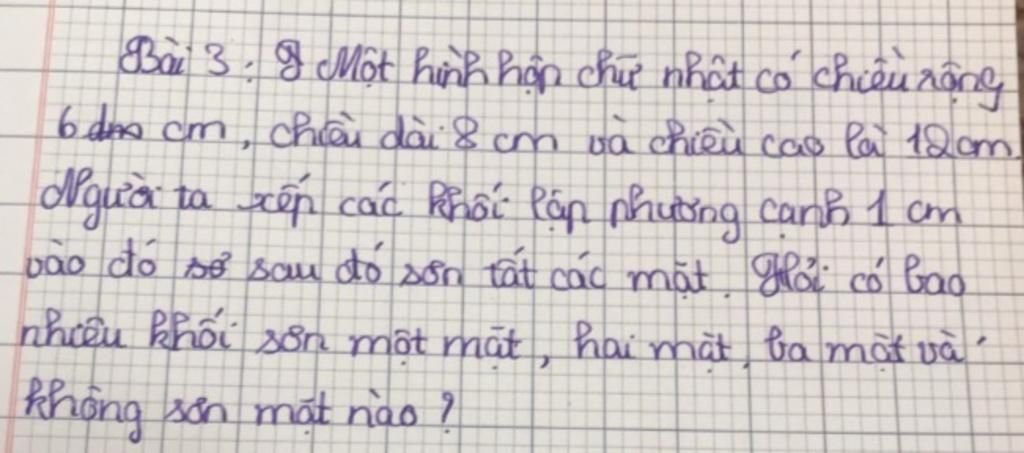 Bài 3: Một hình hộp chữ nhật có chiều rộng
6 cm, chiều dài 8 cm và chiều cao là 12cm.
Người ta xếp các khối lập phương cạnh 1 cm
vào đó sau đó sơn tất các mặt. Hỏi có bao
nhiêu khối sơn một mặt, hai mặt, ba mặt và
không sơn mặt nào?